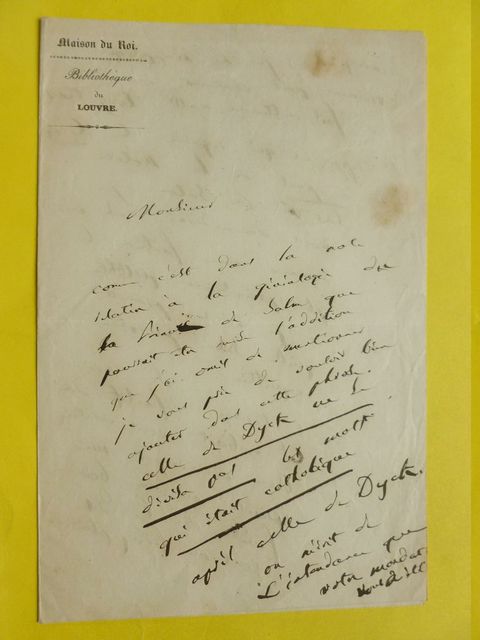 Maison du Roi.
Bibliothèque
du
LOUVRE.
Monsieur
comme c'est dans la note
relative à la généalogie de
la de Salm que
pourrait être mise l'addition
que j'ai omit de mentionner
je vous prie de vouloir bien
ajouter dans cette phrase.
celle de Dyck ne se
divisa pas les mots
qui était catholique
après celle de Dyck.
on m'écrit de
L'intendance que
votre mandat